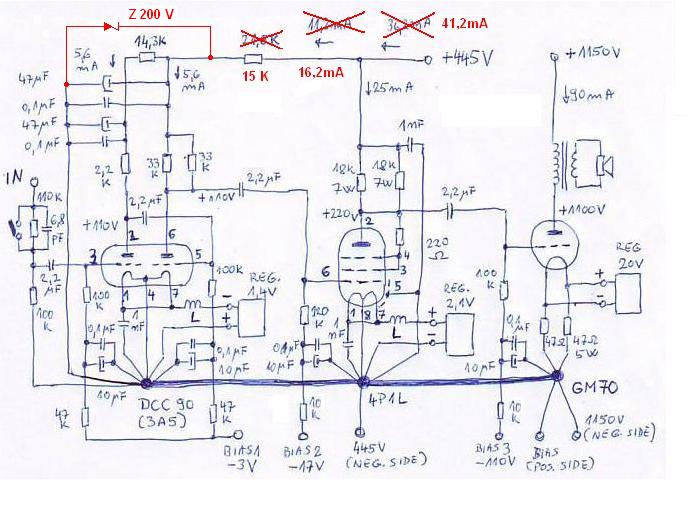 Z 200 V
11,2mA
36,2mA
41,2mA
14,3K
21,8K
5,6 mA
5,6 mA
15 K
16,2mA
+445V
+1150V
47µF
0,1µF
47µF
0,1µF
25mA
90mA
1nF
IN
110K
6,8 pF
2,2 K
33 K
33 K
2,2µF
+110V
+110V
2,2µF
18K 7W
18K 7W
+220V
2,2µF
220 Ω
+1100V
REG 20V
1 6
3 5
1 4 7
2
6
4
3
5
1 8 7
2,2 µF
100 K
100 K
100K
REG. 1,4V
L
1 nF
0,1µF
0,1µF
10µF
10µF
120 K
1 nF
0,1µF
10µF
REG. 2,1V
L
100 K
0,1 µF
10µF
47Ω
47Ω 5W
47 K
47 K
10 K
10 K
DCC 90 (3A5)
4P1L
GM70
BIAS1 -3V
BIAS2 -17V
445V (NEG. SIDE)
BIAS3 -110V
BIAS (POS. SIDE)
1150V (NEG. SIDE)